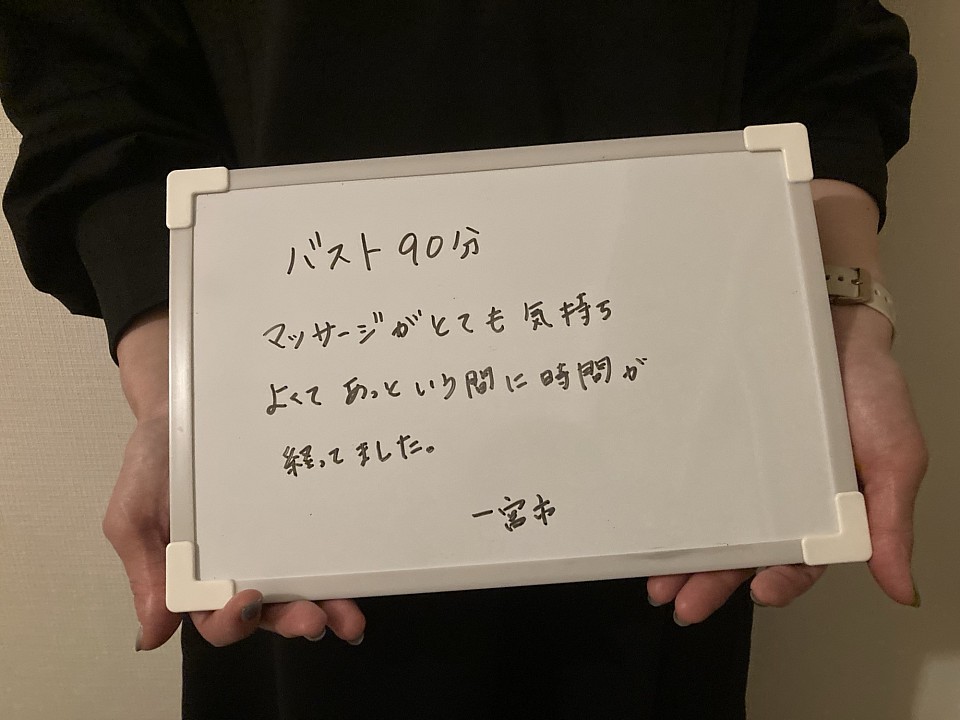 バスト 90分
マッサージがとても 気持ち
よくて あっという間に 時間が
経ってました。
一宮市